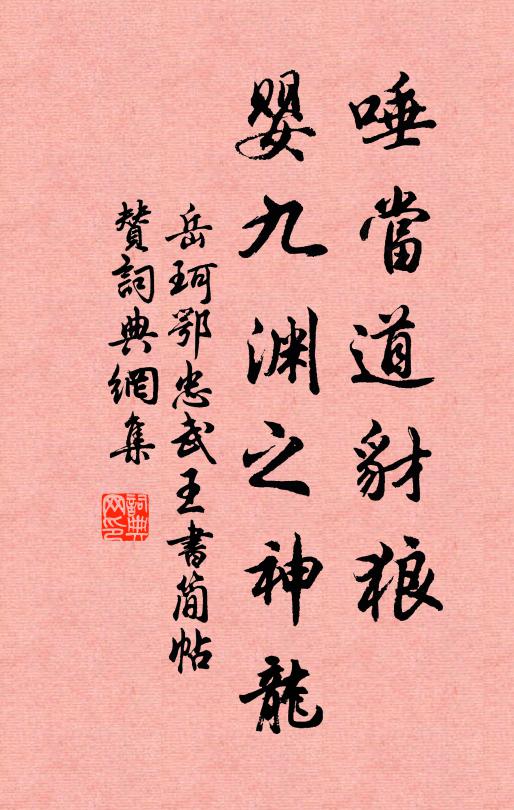 唾當道豺狼
嬰九渊之神龍
岳珂鄂忠武王書简帖
赞詞典網集
詞典网印